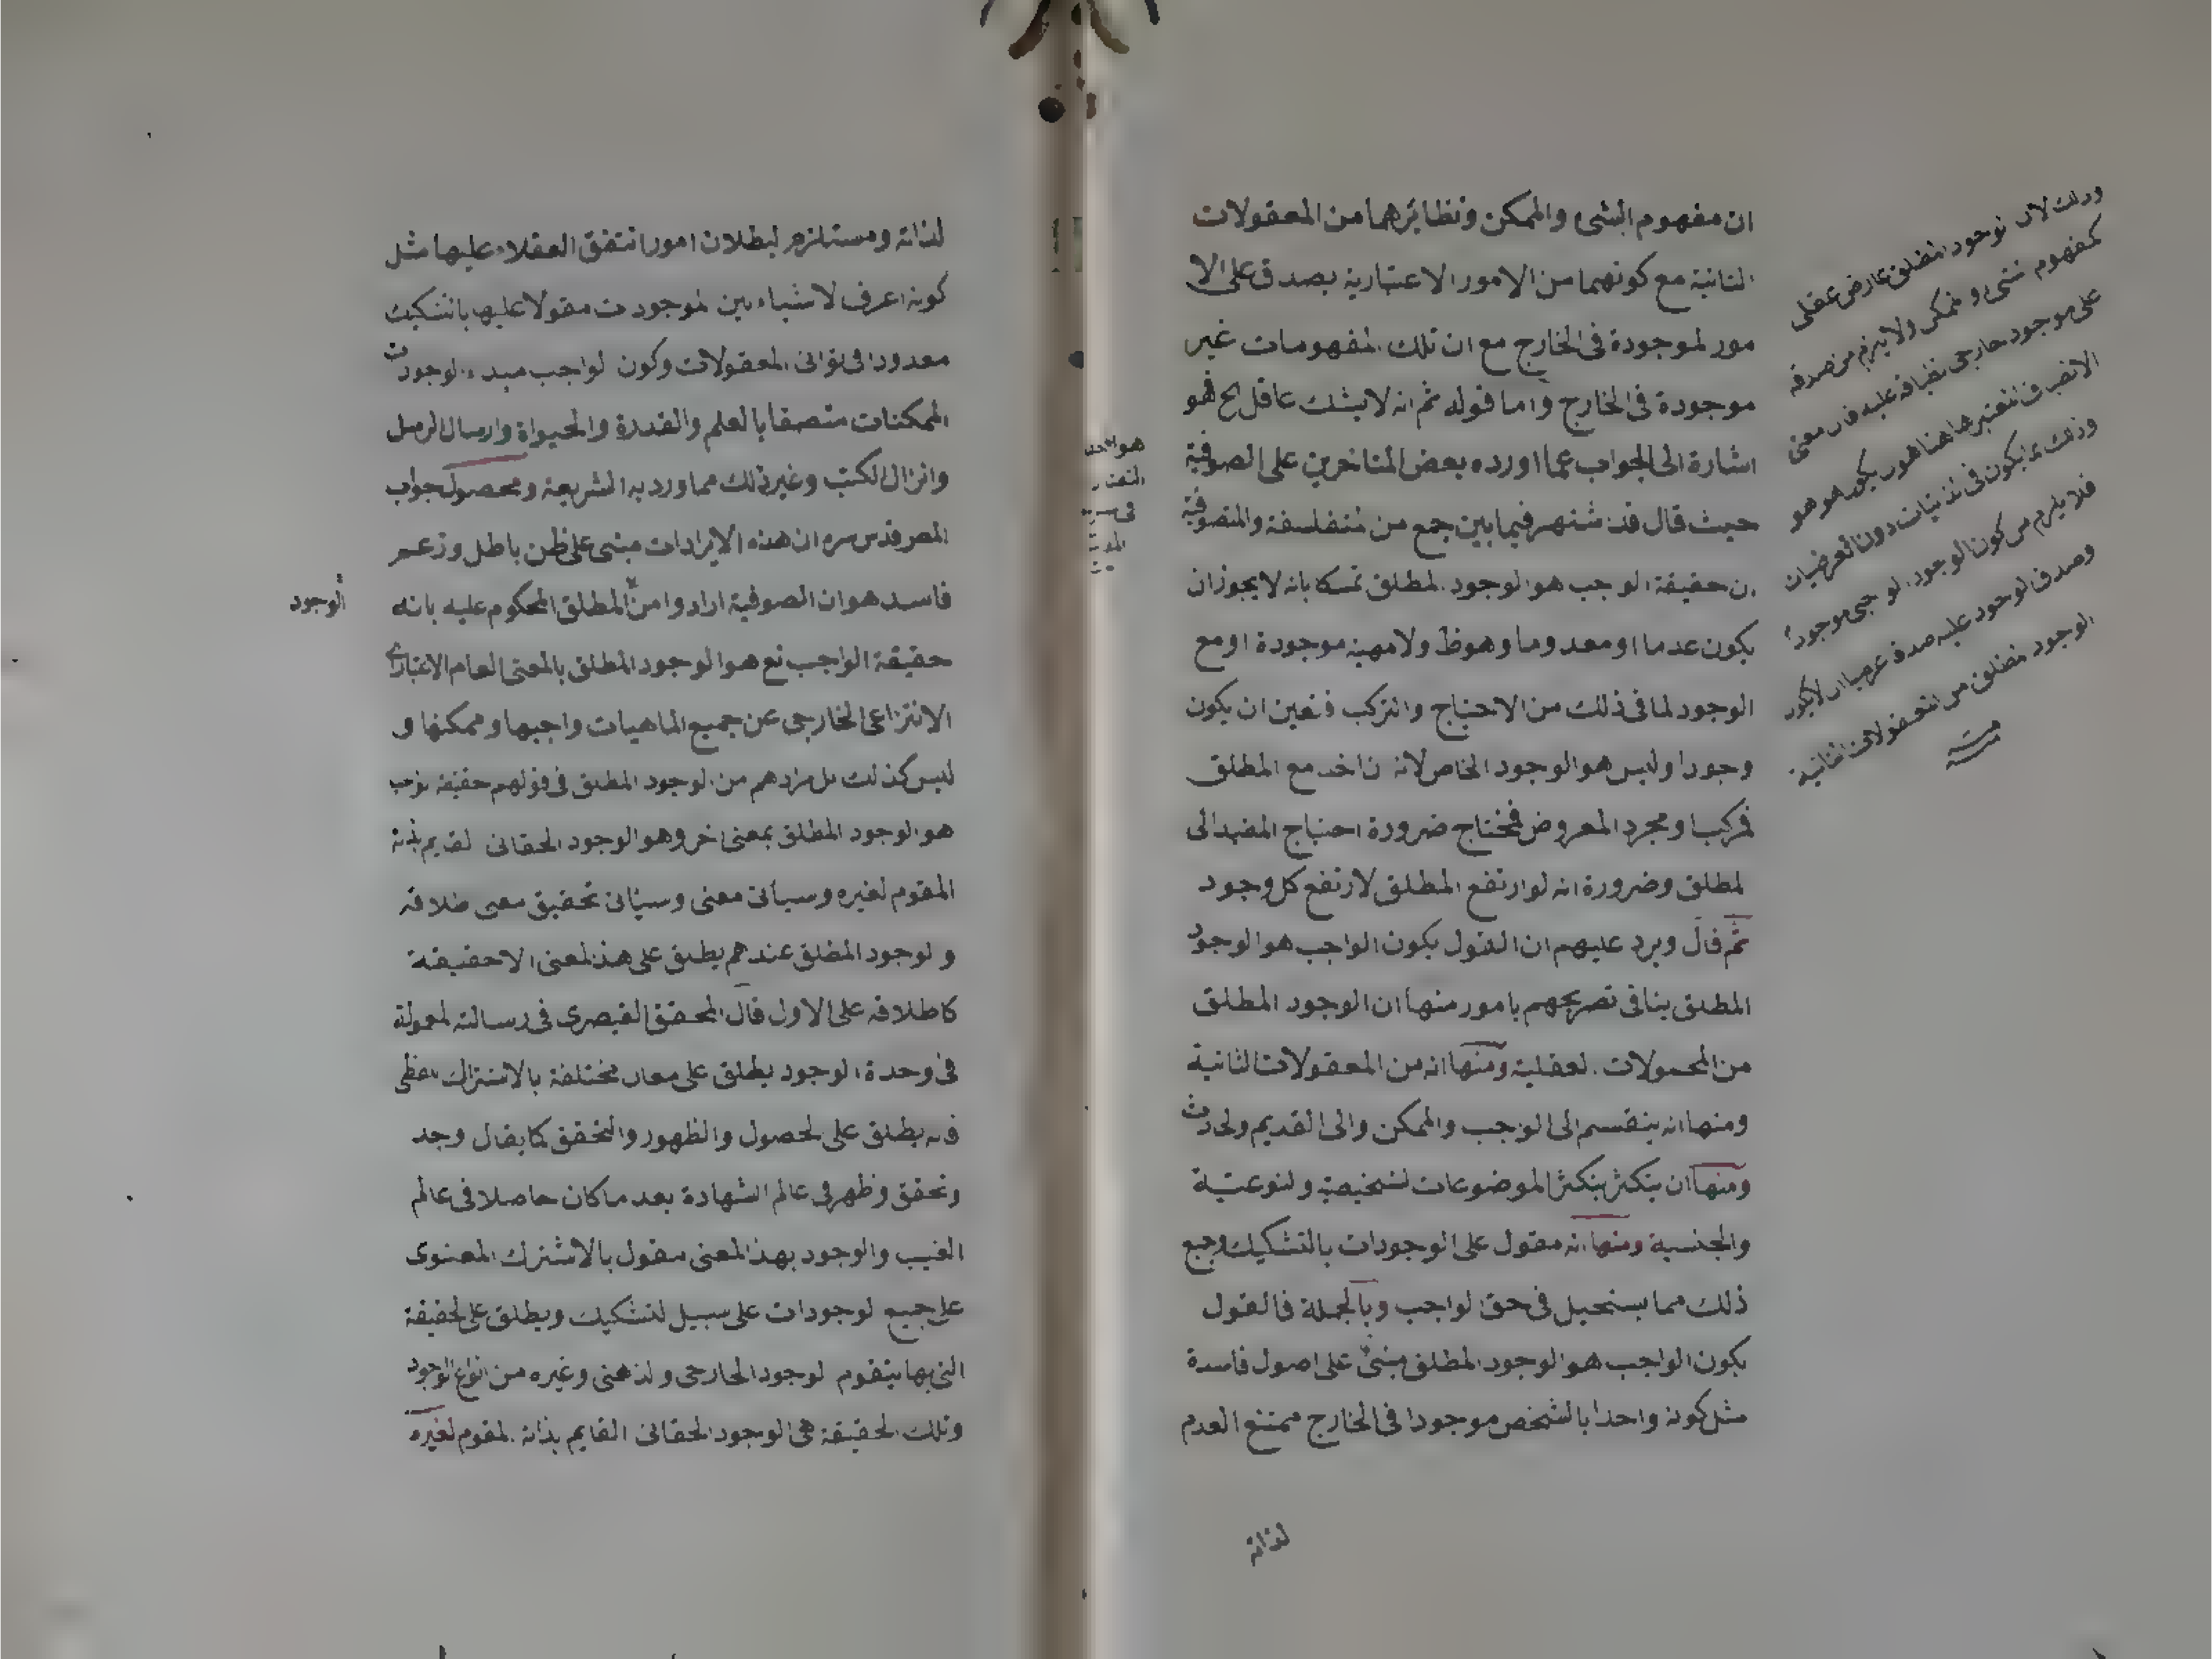 ان مفهوم الشئ والممكن ونظائرهما من المعقولات
الثانية مع كونهما من الامور الاعتبارية يصدق على الا
مور الموجودة فى الخارج مع ان تلك المفهومات غير
موجودة فى الخارج واما قوله ثم انه لا يشك عاقل الخ فهو
اشارة الى الجواب عما اورده بعض المتاخرين على الصوفية
حيث قال قد اشتهر فيما بين جمع من المتفلسفة والمتصوفية
ان حقيقة الواجب هو الوجود المطلق تمسكا بانه لا يجوز ان
يكون عدما او معدوما وهو ظ ولا مهية موجودة او مع
الوجود لما فى ذلك من الاحتياج والتركب فتعين ان يكون
وجودا وليس هو الوجود الخاص لانه ان اخد مع المطلق
فركب او مجرد المعروض فمحتاج ضرورة احتياج المقيد الى
المطلق وضرورة انه لو ارتفع المطلق لارتفع كل وجود
ثم قال ويرد عليهم ان القول بكون الواجب هو الوجود
المطلق ينافى تصريحهم بامور منها ان الوجود المطلق
من المحمولات العقلية ومنها انه من المعقولات الثانية
ومنها انه ينقسم الى الواجب والممكن والى القديم والحادث
ومنها ان يتكثر بتكثر الموضوعات الشخصية والنوعية
والجنسية ومنها انه مقول على الوجودات بالتشكيك وجميع
ذلك مما يستحيل فى حق الواجب وبالجملة فالقول
بكون الواجب هو الوجود المطلق مبنى على اصول فاسدة
مثل كونه واحدا بالشخص موجودا فى الخارج ممتنع العدم
لذاته
وذلك لان الوجود المطلق عارض عقلى
كمفهوم شئ وممكن ولا يلزم من صدقه
على موجود خارجى
وذلك انما يكون فى الذاتيات دون العرضيات
فلا يلزم من كون الوجود الواجبى موجودا
وصدق الوجود عليه صدقا عرضيا ان لا يكون
الوجود المطلق من المعقولات الثانية
لذاته ومستلزم لبطلان امور اتفق العقلاء عليها مثل
كونه اعرف الاشياء بين الموجودات مقولا عليها بالتشكيك
معدودا فى ثوانى المعقولات وكون الواجب مبدء الوجودات
الممكنات متصفا بالعلم والقدرة والحيواة وارسال الرسل
وانزال الكتب وغير ذلك مما ورد به الشريعة ومحصول جواب
المص قدس سره ان هذه الايرادات مبنى على ظن باطل وزعم
فاسد هو ان الصوفية ارادوا من المطلق المحكوم عليه بانه
الوجود
حقيقة الواجب تع هو الوجود المطلق بالمعنى العام الاعتبارى
الانتزاعى الخارجى عن جميع الماهيات واجبها وممكنها و
ليس كذلك بل مرادهم من الوجود المطلق فى قولهم حقيقة الواجب
هو الوجود المطلق بمعنى اخر وهو الوجود الحقانى القايم بذاته
المقوم لغيره وسياتى معنى وسيأتى تحقيق معنى اطلاقه
والوجود المطلق عندهم يطلق على هذ المعنى الا حقيقة
كاطلاقه على الاول قال المحقق القيصرى فى رسالته المعمولة
فى وحدة الوجود يطلق على معان مختلفة بالاشتراك اللفظى
فانه يطلق على الحصول والظهور والتحقق كما يقال وجد
وتحقق وظهر فى عالم الشهادة بعد ما كان حاصلا فى عالم
الغيب والوجود بهذ المعنى مقول بالاشترك المعنوى
على جميع الوجودات على سبيل التشكيك ويطلق على الحقيقة
التى بها يتقوم الوجود الخارجى والذهنى وغيره من انواع الوجود
وتلك الحقيقة هى الوجود الحقانى القايم بذاته المقوم لغيره